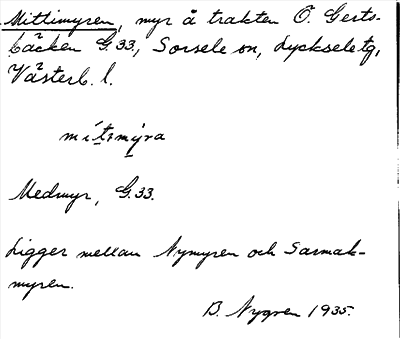 Mittimyren, myr å trakten Ö. Gerts-
bäcken G.33., Sorsele sn, Lycksele tg,
Västerb. l.
mítimýra
Medmyr, G.33.
Ligger mellan Nymyren och Sarmak-
myren.
B. Nygren 1935.